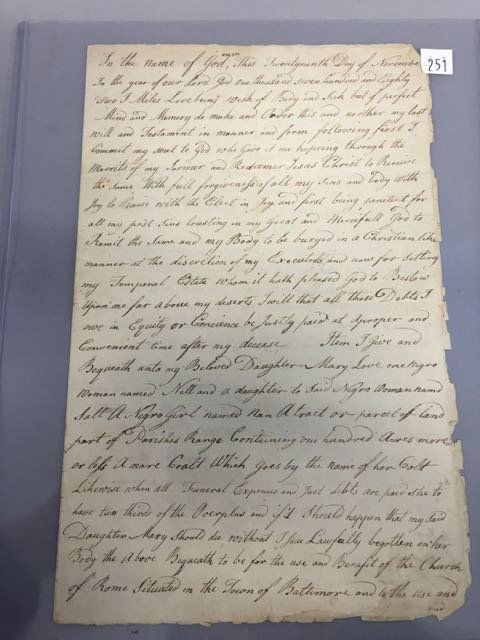 251
In the name of God amen, This Twentynenth Day of Novembe
In the year of our Lord God one thousand seven hundred and Eighty
two I Miles Love being Weak of Body and Sick but of perfect
Mind and Memory do make and Order this and no other my last
Will and Testament in manner and form following first I
Commit my Soul to God who Gave it me hopeing through the
Merrits of my Saviour and Redeemer Jesus Christ to Receive
the Same With full forgiveness of all my Sins and Body With
Joy to Raise with the Elect in Joy and first being penetent for
all my past Sins trusting in my Great and Mercifull God to
Remit the Same and my Body to be buryed in a Christian like
manner at the discretion of my Executors and now for Setling
my Temporal Estate Whom it hath pleased God to Bestow
Upon me far above my deserts I will that all those Debts I
owe in Equity or Concience be Justly paid at aproper and
Convenient time after my decease Item I Give and
Bequeath unto my Beloved Daughter Mary Love one Negro
Woman named Nell and a daughter to Said Negro Woman named
Sall A Negro Girl named Nan A tract or parcel of land
part of Parishes Range Containing one hundred Acres more
or less A mare Coalt Which goes by the name of her Colt
Likewise when all Funeral Expences and Just debts are paid she to
have two thirds of the Overplus and if I Should happen that my Said
Daughter Mary Should die without Issue Lawfully begotten on her
Body the Above Bequeath to be for the use and Benefit of the Church
of Rome Situated in the Town of Baltemore and to the Use and